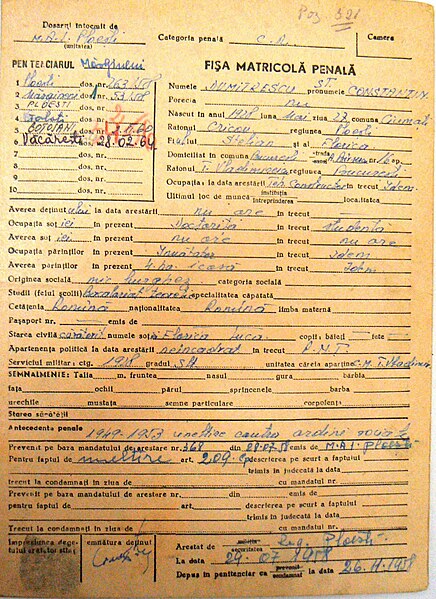 Poz 321
Dosarul întocmit de
M.A.I. Ploești
(unitatea)
Categoria penală C.R.
Camera
PENITENCIARUL Mărgineni
FIȘA MATRICOLĂ PENALĂ
1 Ploești dos. nr. 263/58
2 Mărgineni dos. nr. 53/58
3 PLOEȘTI dos. nr.
4 dos. nr.
5 BOTOȘANI dos. nr. 60
6 Văcărești dos. nr. 28.02.64
7 dos. nr.
8 dos. nr.
9 dos. nr.
10 dos. nr.
Numele DUMITRESCU ST. pronumele CONSTANTIN
Porecla nu
Născut în anul 1928 luna Mai ziua 27 comuna
Raionul Cricov regiunea Ploești
Fiul lui Ștefan și al Florica
Domiciliat în comuna București strada
Raionul T. Vladimirescu regiunea București
Ocupația la data arestării Constructor în trecut Idem
Ultimul loc de muncă instituția întreprinderea localitatea
Averea deținutului la data arestării nu are în trecut
Ocupația soției în prezent în trecut studentă
Averea soției în prezent nu are în trecut nu are
Ocupația părinților în prezent în trecut Idem
Averea părinților în prezent 4 ha. casă în trecut Idem
Originea socială mic burghez categoria socială
Studii (felul școlii) specialitatea căpătată
Cetățenia Română naționalitatea Română limba maternă
Pașaport nr. emis de
Starea civilă căsătorit numele soției Florica Luca copii: băieți fete
Apartenența politică la data arestării neîncadrat în trecut P.N.T.
Serviciul militar: ctg. 1948 gradul unitatea C.M. T. Vladimir
SEMNALMENTE: Talia m. fruntea nasul gura barba
fața ochii părul sprîncenele bărbia
urechile mustața semne particulare corpolență
Starea sănătății
Antecedente penale
1949-1953 uneltire contra ordine sociale
Prevenit pe baza mandatului de arestare nr. 368 din 28.07.58 emis de M.A.I. Ploești
Pentru faptul de uneltire art. 209 cp descrierea pe scurt a faptului
trimis în judecată la data
trecut la condamnați în ziua de cu mandatul nr.
Prevenit pe baza mandatului de arestare nr. din emis de
pentru faptul de art. descrierea pe scurt a faptului
trimis în judecată la data
Trecut la condamnați în ziua de cu mandatul nr.
Impresiunea degetului arătător stîng
Semnătura deținut
Arestat de securitatea Reg. Ploești
La data 29.07.1958
Depus în penitenciar ca prevenit condamnat la data 26.11.1958